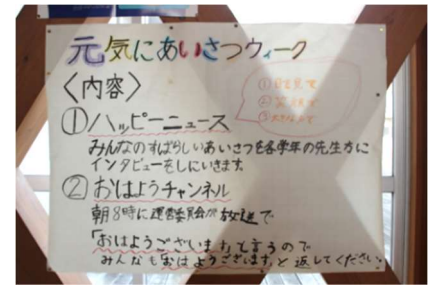 元気にあいさつウィーク
〈内容〉
①目を見て
②笑顔で
③大きな声で
①ハッピーニュース
みんなのすばらしいあいさつを各学年の先生方に
インタビューをしにいきます。
②おはようチャンネル
朝8時に運営委員会が放送で
「おはようございます」と言うので
みんなも「おはようございます」と返してください。